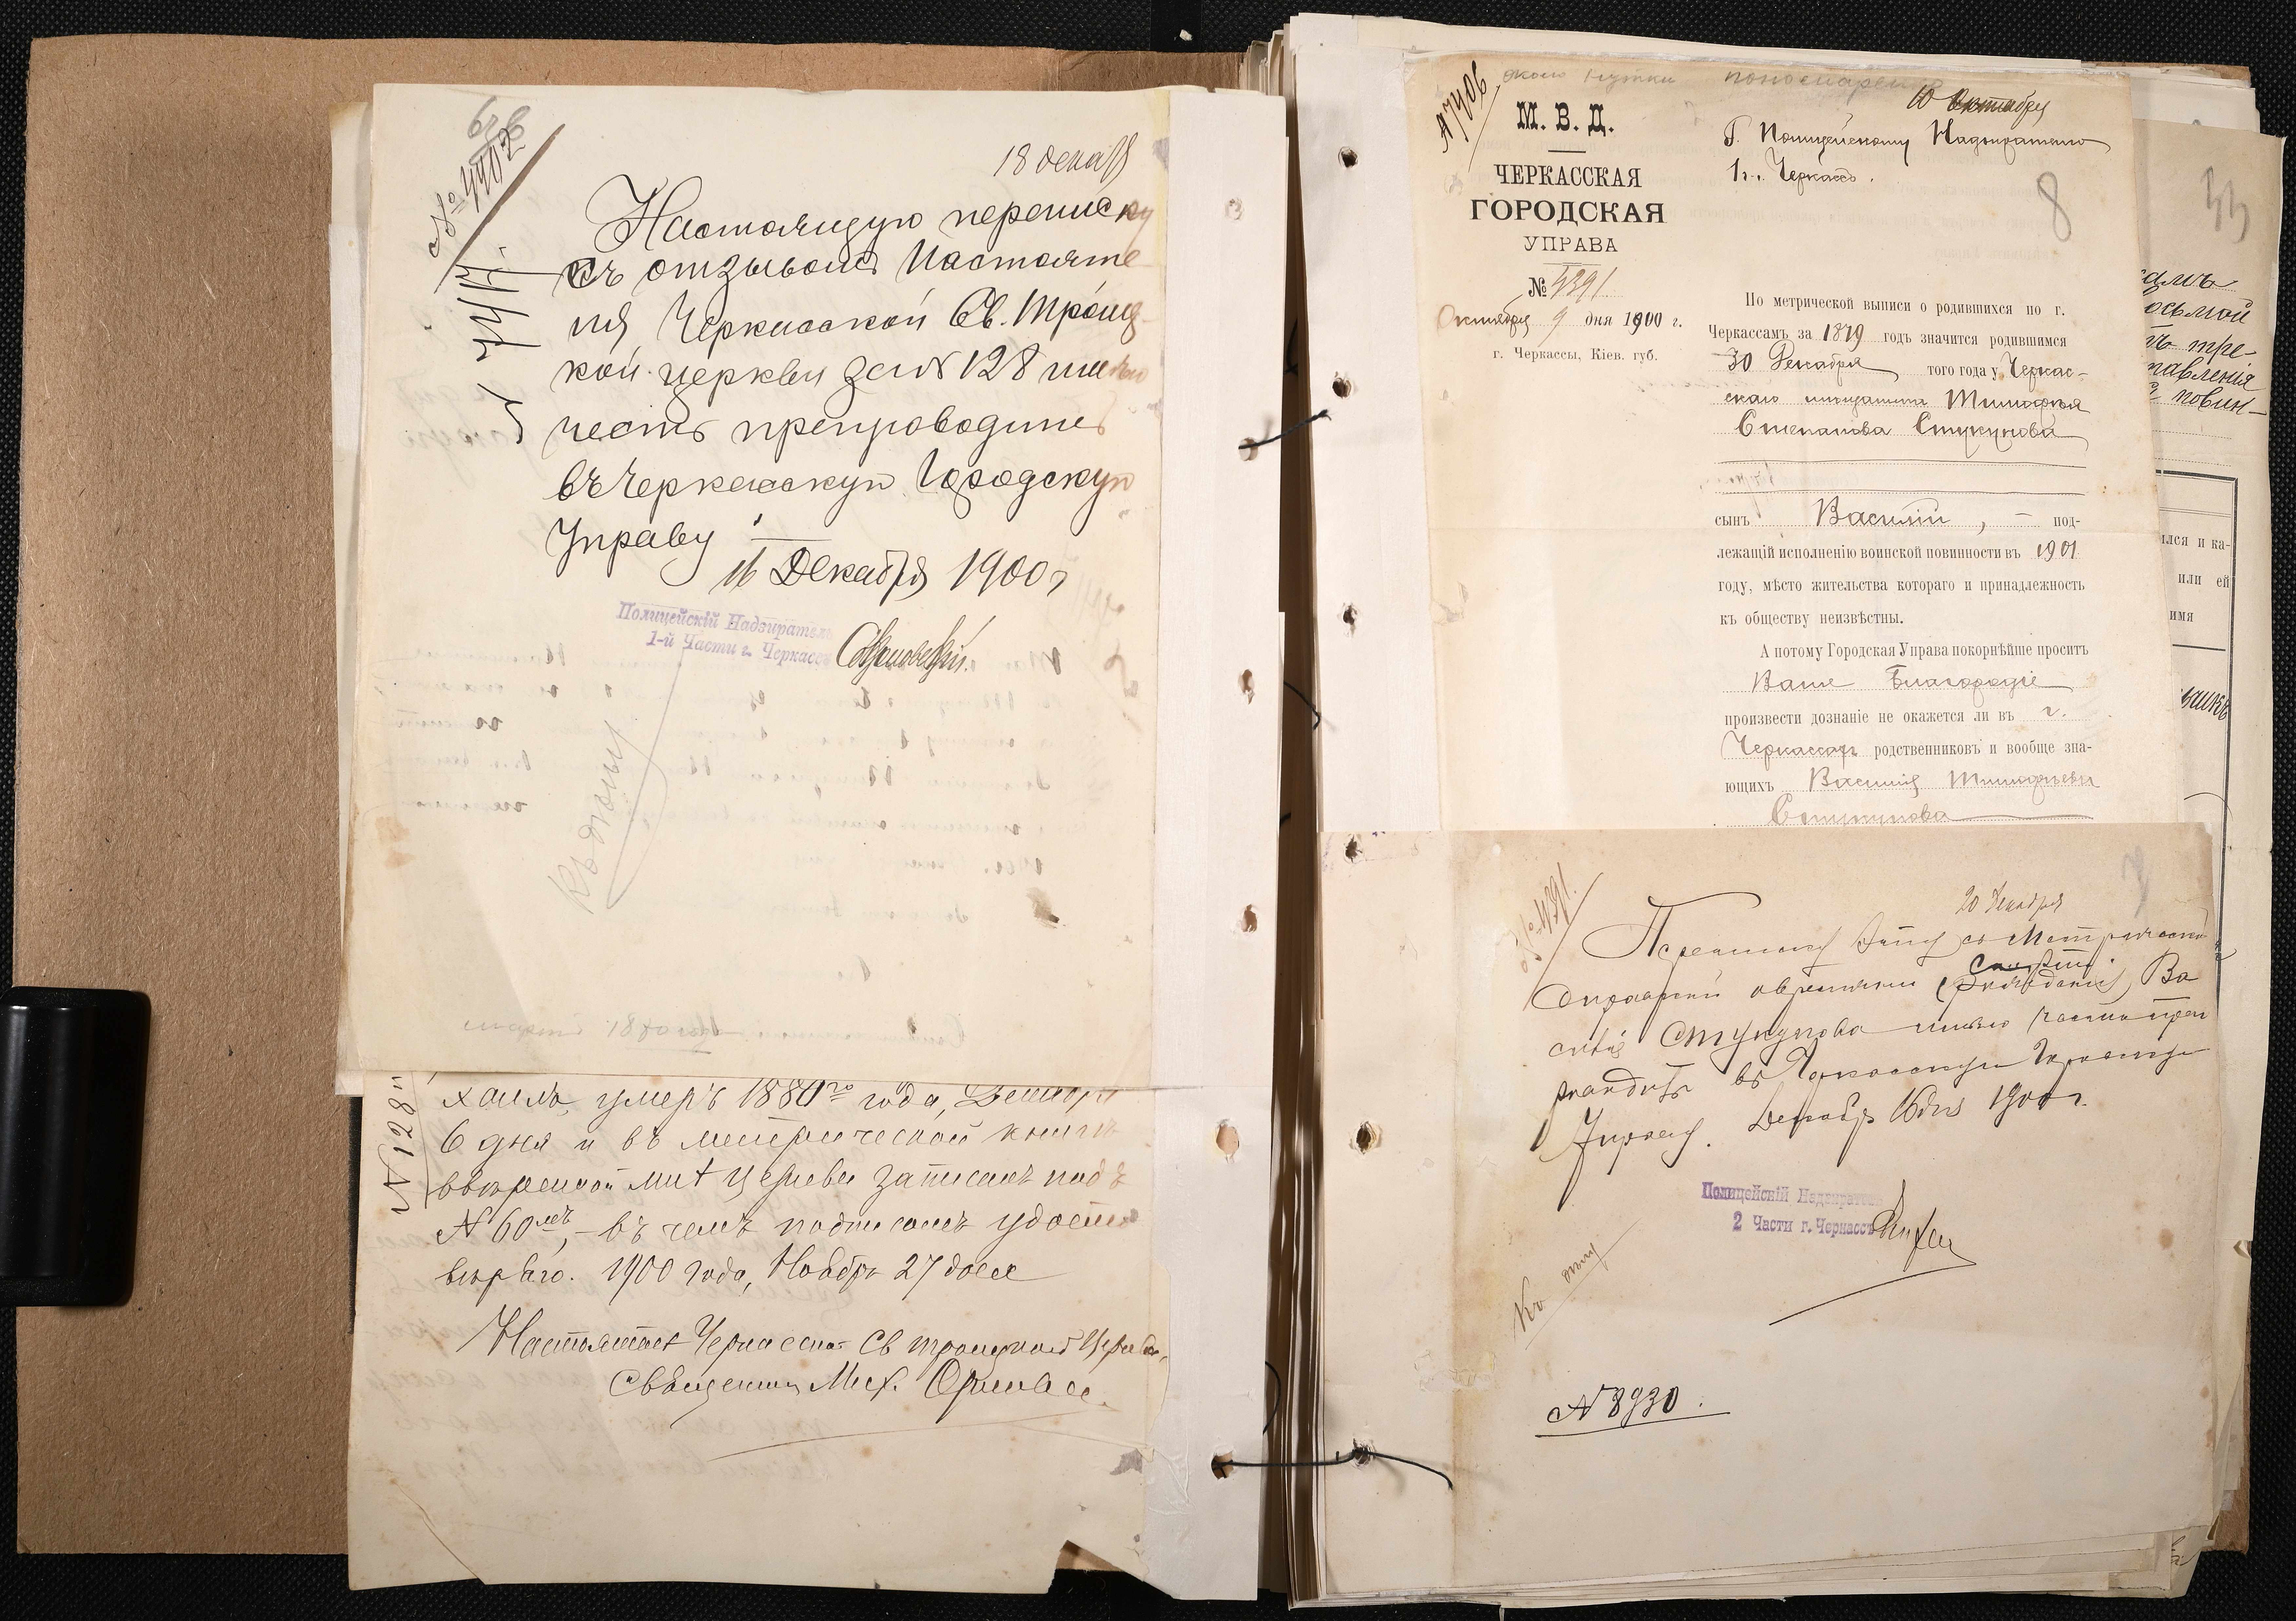 № 4402
18 декаб
Настоящую переписку
съ отзывомъ Настояте-
ля Черкасской Св. Троиц-
кой церкви за № 128 имею
честь препроводить
въ Черкасскую Городскую
Управу
16 Декабря 1900 г
Полицейскій Надзиратель
1-й Части г. Черкассъ
№ 128
хаилъ, умеръ 1880го года,
6 дня и въ метрической книге
ввѣренной мнѣ церкви записанъ подъ
№ 60мъ,- въ чемъ подписомъ удосто-
вѣряю. 1900 года, Ноября 27 дня
Настоятель Черкасской Св Троицкой Церкви,
Священник Мих.
№ 7406
М. В. Д.
ЧЕРКАССКАЯ
ГОРОДСКАЯ
УПРАВА
№ 4391
Октября 9 дня 1900 г.
г. Черкассы, Кіев. губ.
10 Октября
Г. Полицейскому Надзирателю
1 ч. г. Черкассъ.
8
По метрической выписи о родившихся по г.
Черкассамъ за 1879 годъ значится родившимся
30 Декабря того года у Черкас-
скаго мещанина Тимофея
Степанова Стукунова
сынъ Василій, — под-
лежащій исполненію воинской повинности въ 1901
году, мѣсто жительства котораго и принадлежность
къ обществу неизвѣстны.
А потому Городская Управа покорнѣйше проситъ
Ваше Благородіе
произвести дознаніе не окажется ли въ г.
Черкассахъ родственниковъ и вообще зна-
ющихъ Василія Тимофеева
Стукунова
№ 4391.
20 Декабря
Переписку эту съ Метрической
справкой о времени смерти Ва
силія Стукунова имею честь препро
водить въ Черкасскую Городскую
Управу. Декабря 16 дня 1900 г.
Полицейскій Надзиратель
2 Части г. Черкассъ
Къ делу
№ 8930.
33
осьмой
тре-
тавленія
повин-
ился и ка-
или ей
имя